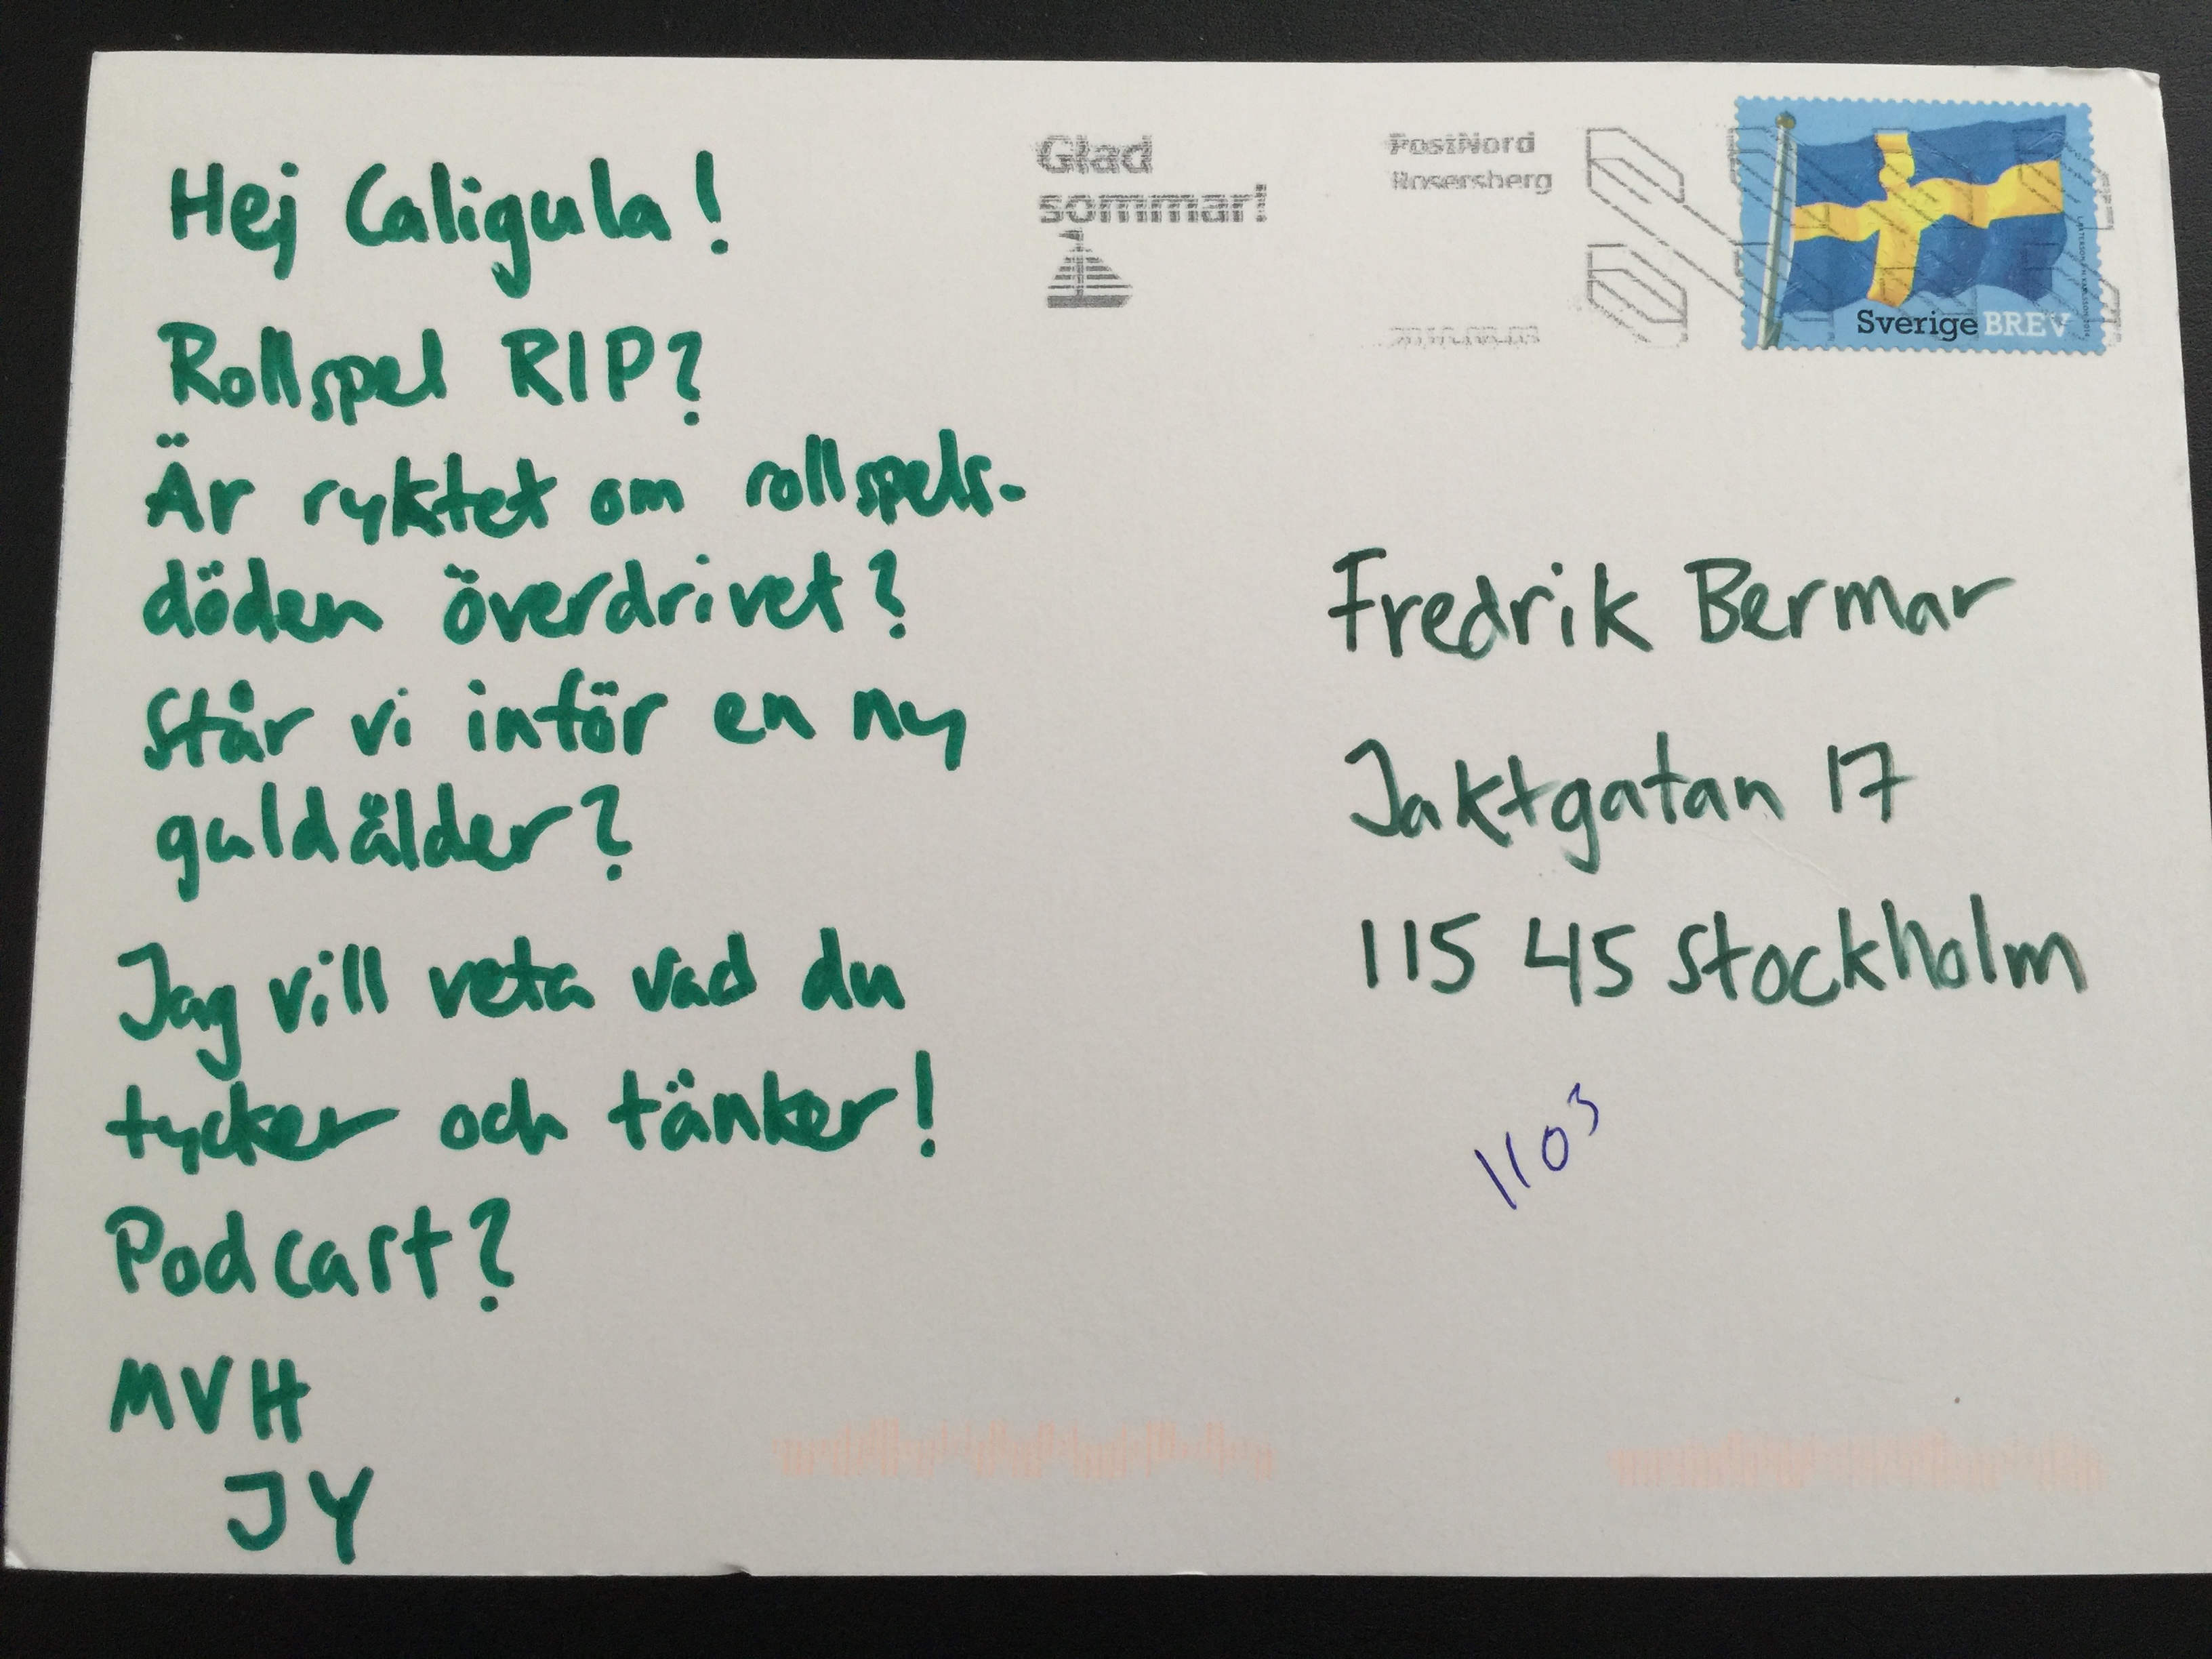 Hej Caligula!
Rollspel RIP?
Är ryktet om rollspels-
döden överdrivet?
Står vi inför en ny
guldålder?
Jag vill veta vad du
tycker och tänker!
Podcast?
MVH
JY
Glad
sommar!
PostNord
Rosersberg
Sverige BREV
Fredrik Bermar
Jaktgatan 17
115 45 Stockholm
1103